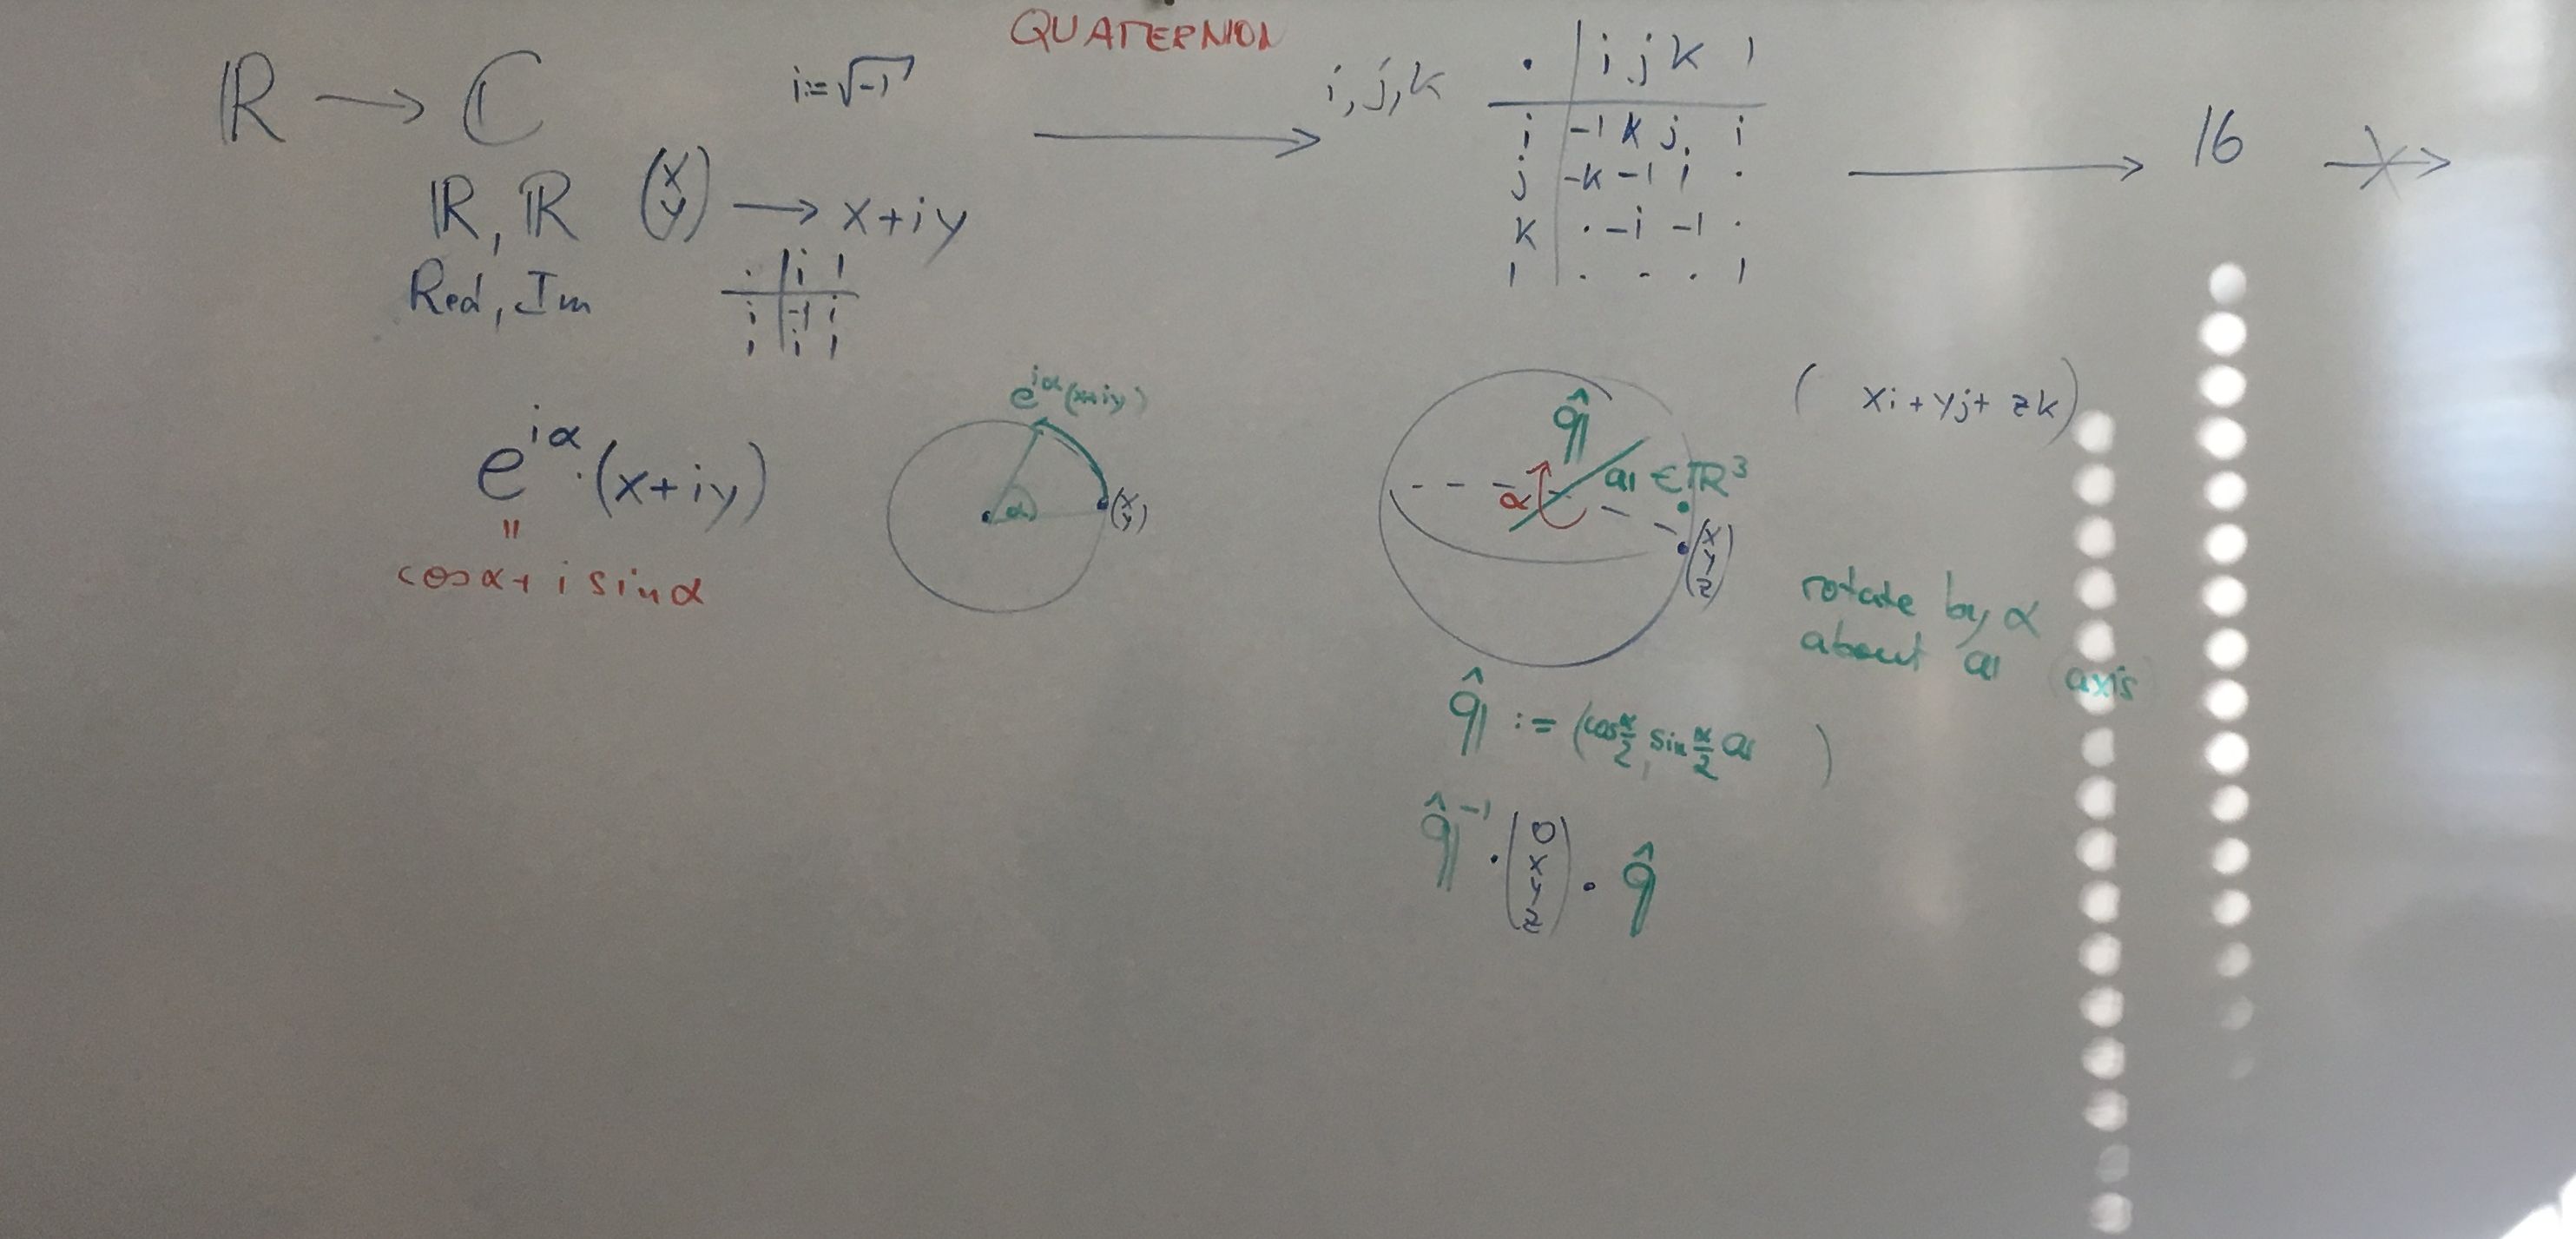 QUATERNION
ℝ → ℂ
i := √-1
ℝ, ℝ (x y) → x+iy
Real, Im
· | i 1
i | -1 i
1 | i 1
i, j, k
· | i j k 1
i | -1 k j i
j | -k -1 i ·
k | · -i -1 ·
1 | · - · 1
→ 16
e^{iα} · (x+iy)
=
cos α + i sin α
e^{iα}(x+iy)
α
(x y)
q̂
α
𝕒 ∈ ℝ³
(x y z)
( xi + yj + zk )
rotate by α
about 𝕒 axis
q̂ := (cos α/2, sin α/2 𝕒 )
q̂⁻¹ · (0 x y z) · q̂